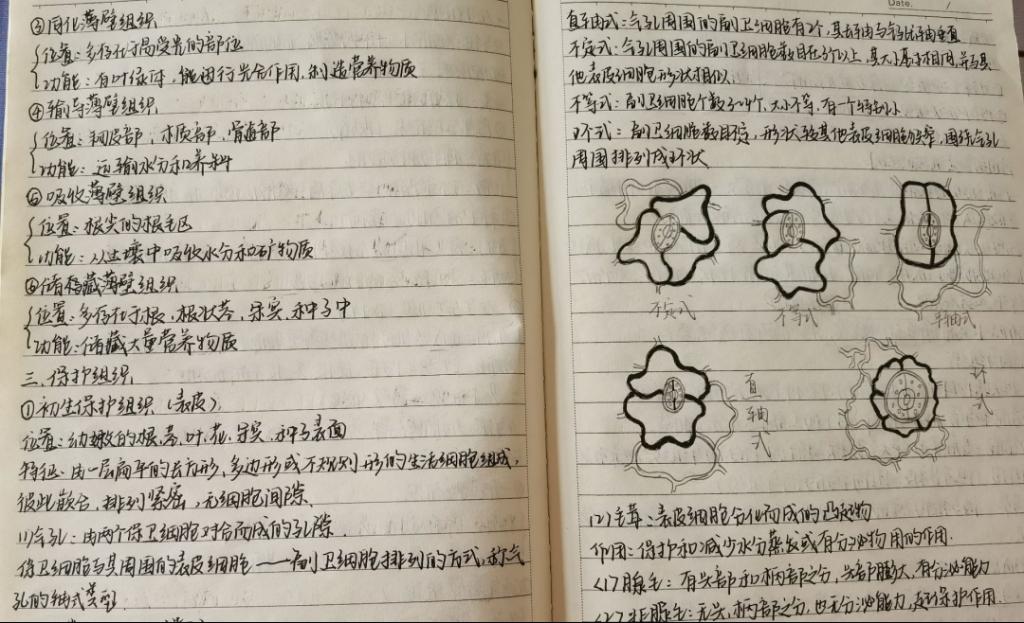 ③同化薄壁组织
位置：多存在于易受光的部位
功能：有叶绿体，能进行光合作用，制造营养物质
④输导薄壁组织
位置：韧皮部，木质部，髓部
功能：运输水分和养料
⑤吸收薄壁组织
位置：根尖的根毛区
功能：从土壤中吸收水分和矿物质
⑥储藏薄壁组织
位置：多存在于根、根状茎、果实、种子中
功能：储藏大量营养物质
三、保护组织
①初生保护组织（表皮）
位置：幼嫩的根、茎、叶、花、果实、种子表面
特征：由一层扁平的长方形，多边形或不规则形的生活细胞组成，
彼此嵌合，排列紧密，无细胞间隙、
(1)气孔：由两个保卫细胞对合而成的孔隙.
保卫细胞与其周围的表皮细胞——副卫细胞排列的方式，称气
孔的轴式类型
Date.
直轴式：气孔周围的副卫细胞有2个，其长轴与气孔长轴垂直
不定式：气孔周围的副卫细胞数目在3个以上，其大小基本相同，并与其
他表皮细胞形状相似
不等式：副卫细胞个数3~4个，大小不等，有一个特别小
环式：副卫细胞数目不定，形状较其他表皮细胞狭窄，围绕气孔
周围排列成环状
不定式
不等式
平轴式
直轴式
环式
(2)毛茸：表皮细胞分化而成的凸起物
作用：保护和减少水分蒸发或有分泌物用的作用.
<1>腺毛：有头部和柄部之分，头部膨大，有分泌能力
<2>非腺毛：无头，柄部之分，也无分泌能力，起保护作用.